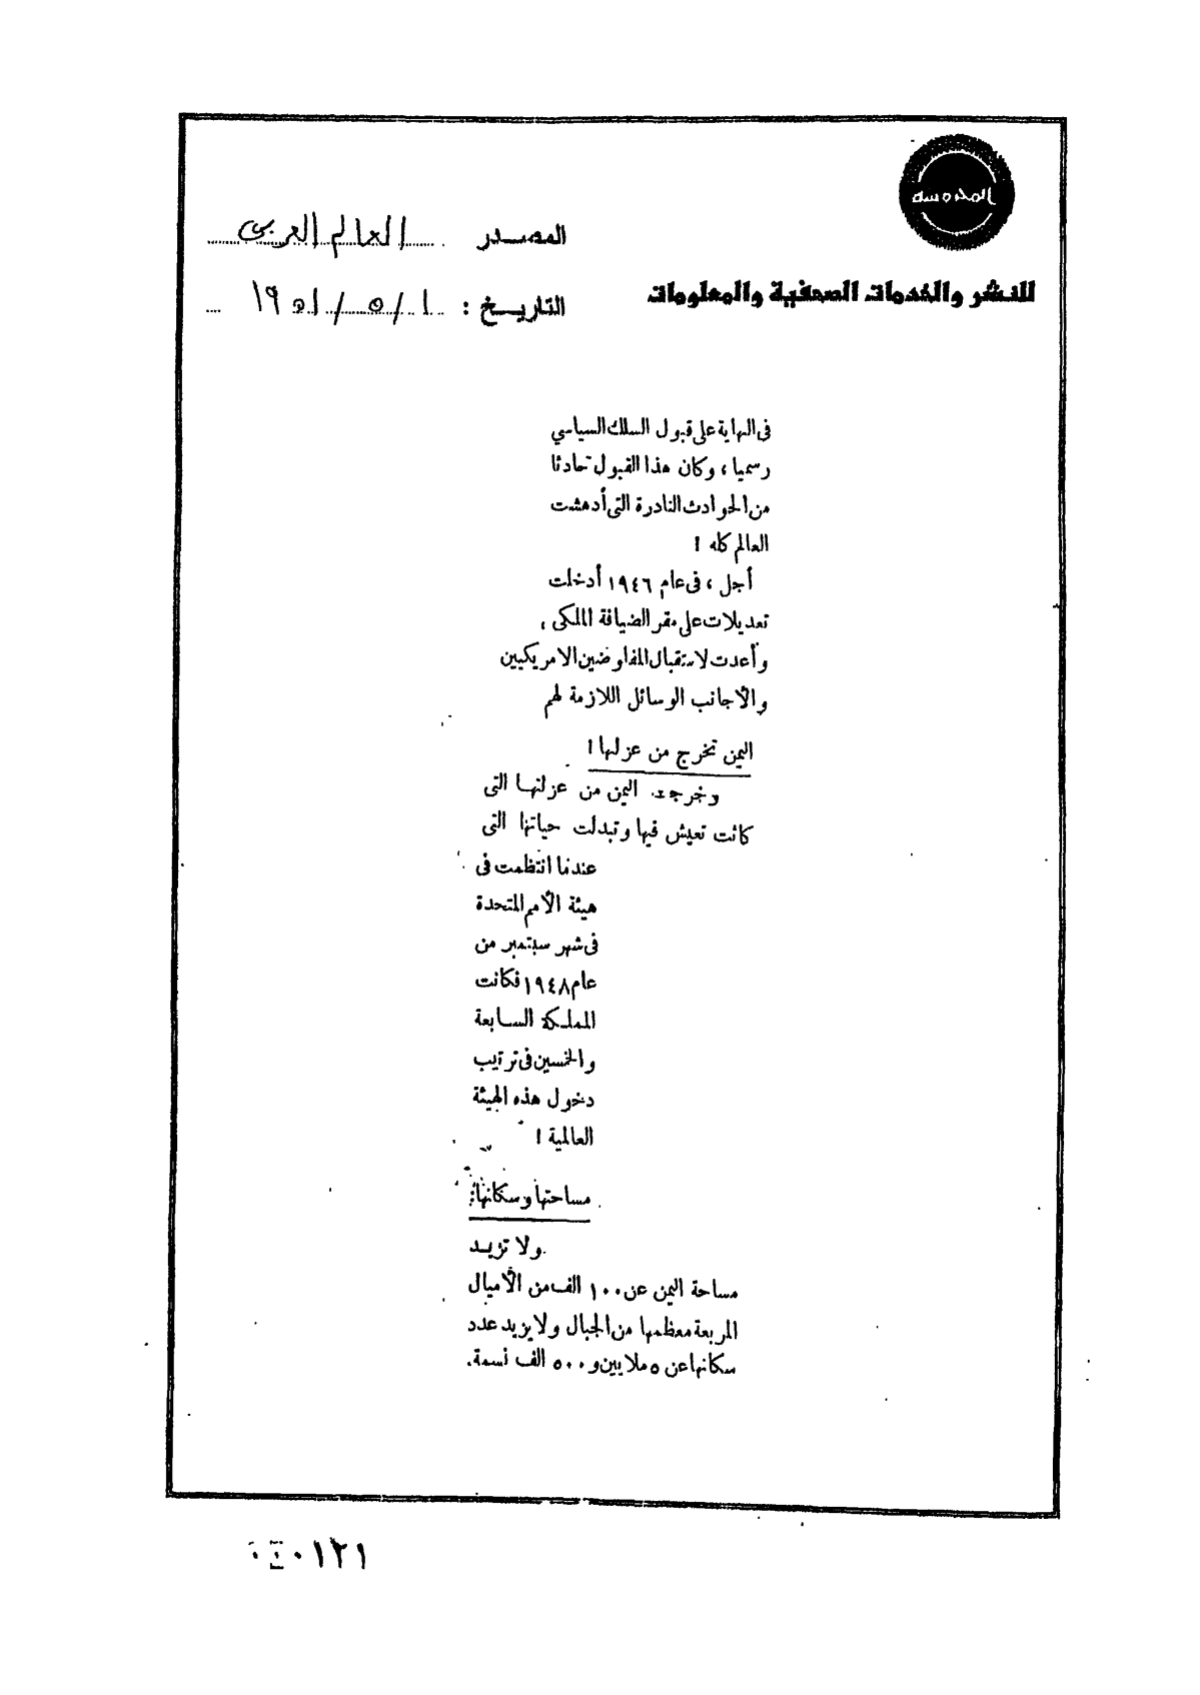 المحروسة
للنشر والخدمات الصحفية والمعلومات
المصدر العالم العربى
التاريخ : ١ / ٥ / ١٩٥١
فى النهاية على قبول السلك السياسي
رسميا ، وكان هذا القبول حادثا
من الحوادث النادرة التى أدهشت
العالم كله !
أجل ، فى عام ١٩٤٦ أدخلت
تعديلات على مقر الضيافة الملكى ،
وأعدت لاستقبال المفاوضين الامريكيين
والأجانب الوسائل اللازمة لهم
اليمن تخرج من عزلتها !
وخرجت اليمن من عزلتها التى
كانت تعيش فيها وتبدلت حياتها التى
عندما انتظمت فى
هيئة الأمم المتحدة
فى شهر سبتمبر من
عام ١٩٤٨ فكانت
المملكة السابعة
والخمسين فى ترتيب
دخول هذه الهيئة
العالمية !
مساحتها وسكانها :
ولا تزيد
مساحة اليمن عن ١٠٠ الف من الأميال
المربعة معظمها من الجبال ولا يزيد عدد
سكانها عن ٥ ملايين و ٥٠٠ الف نسمة .
٠١٢١